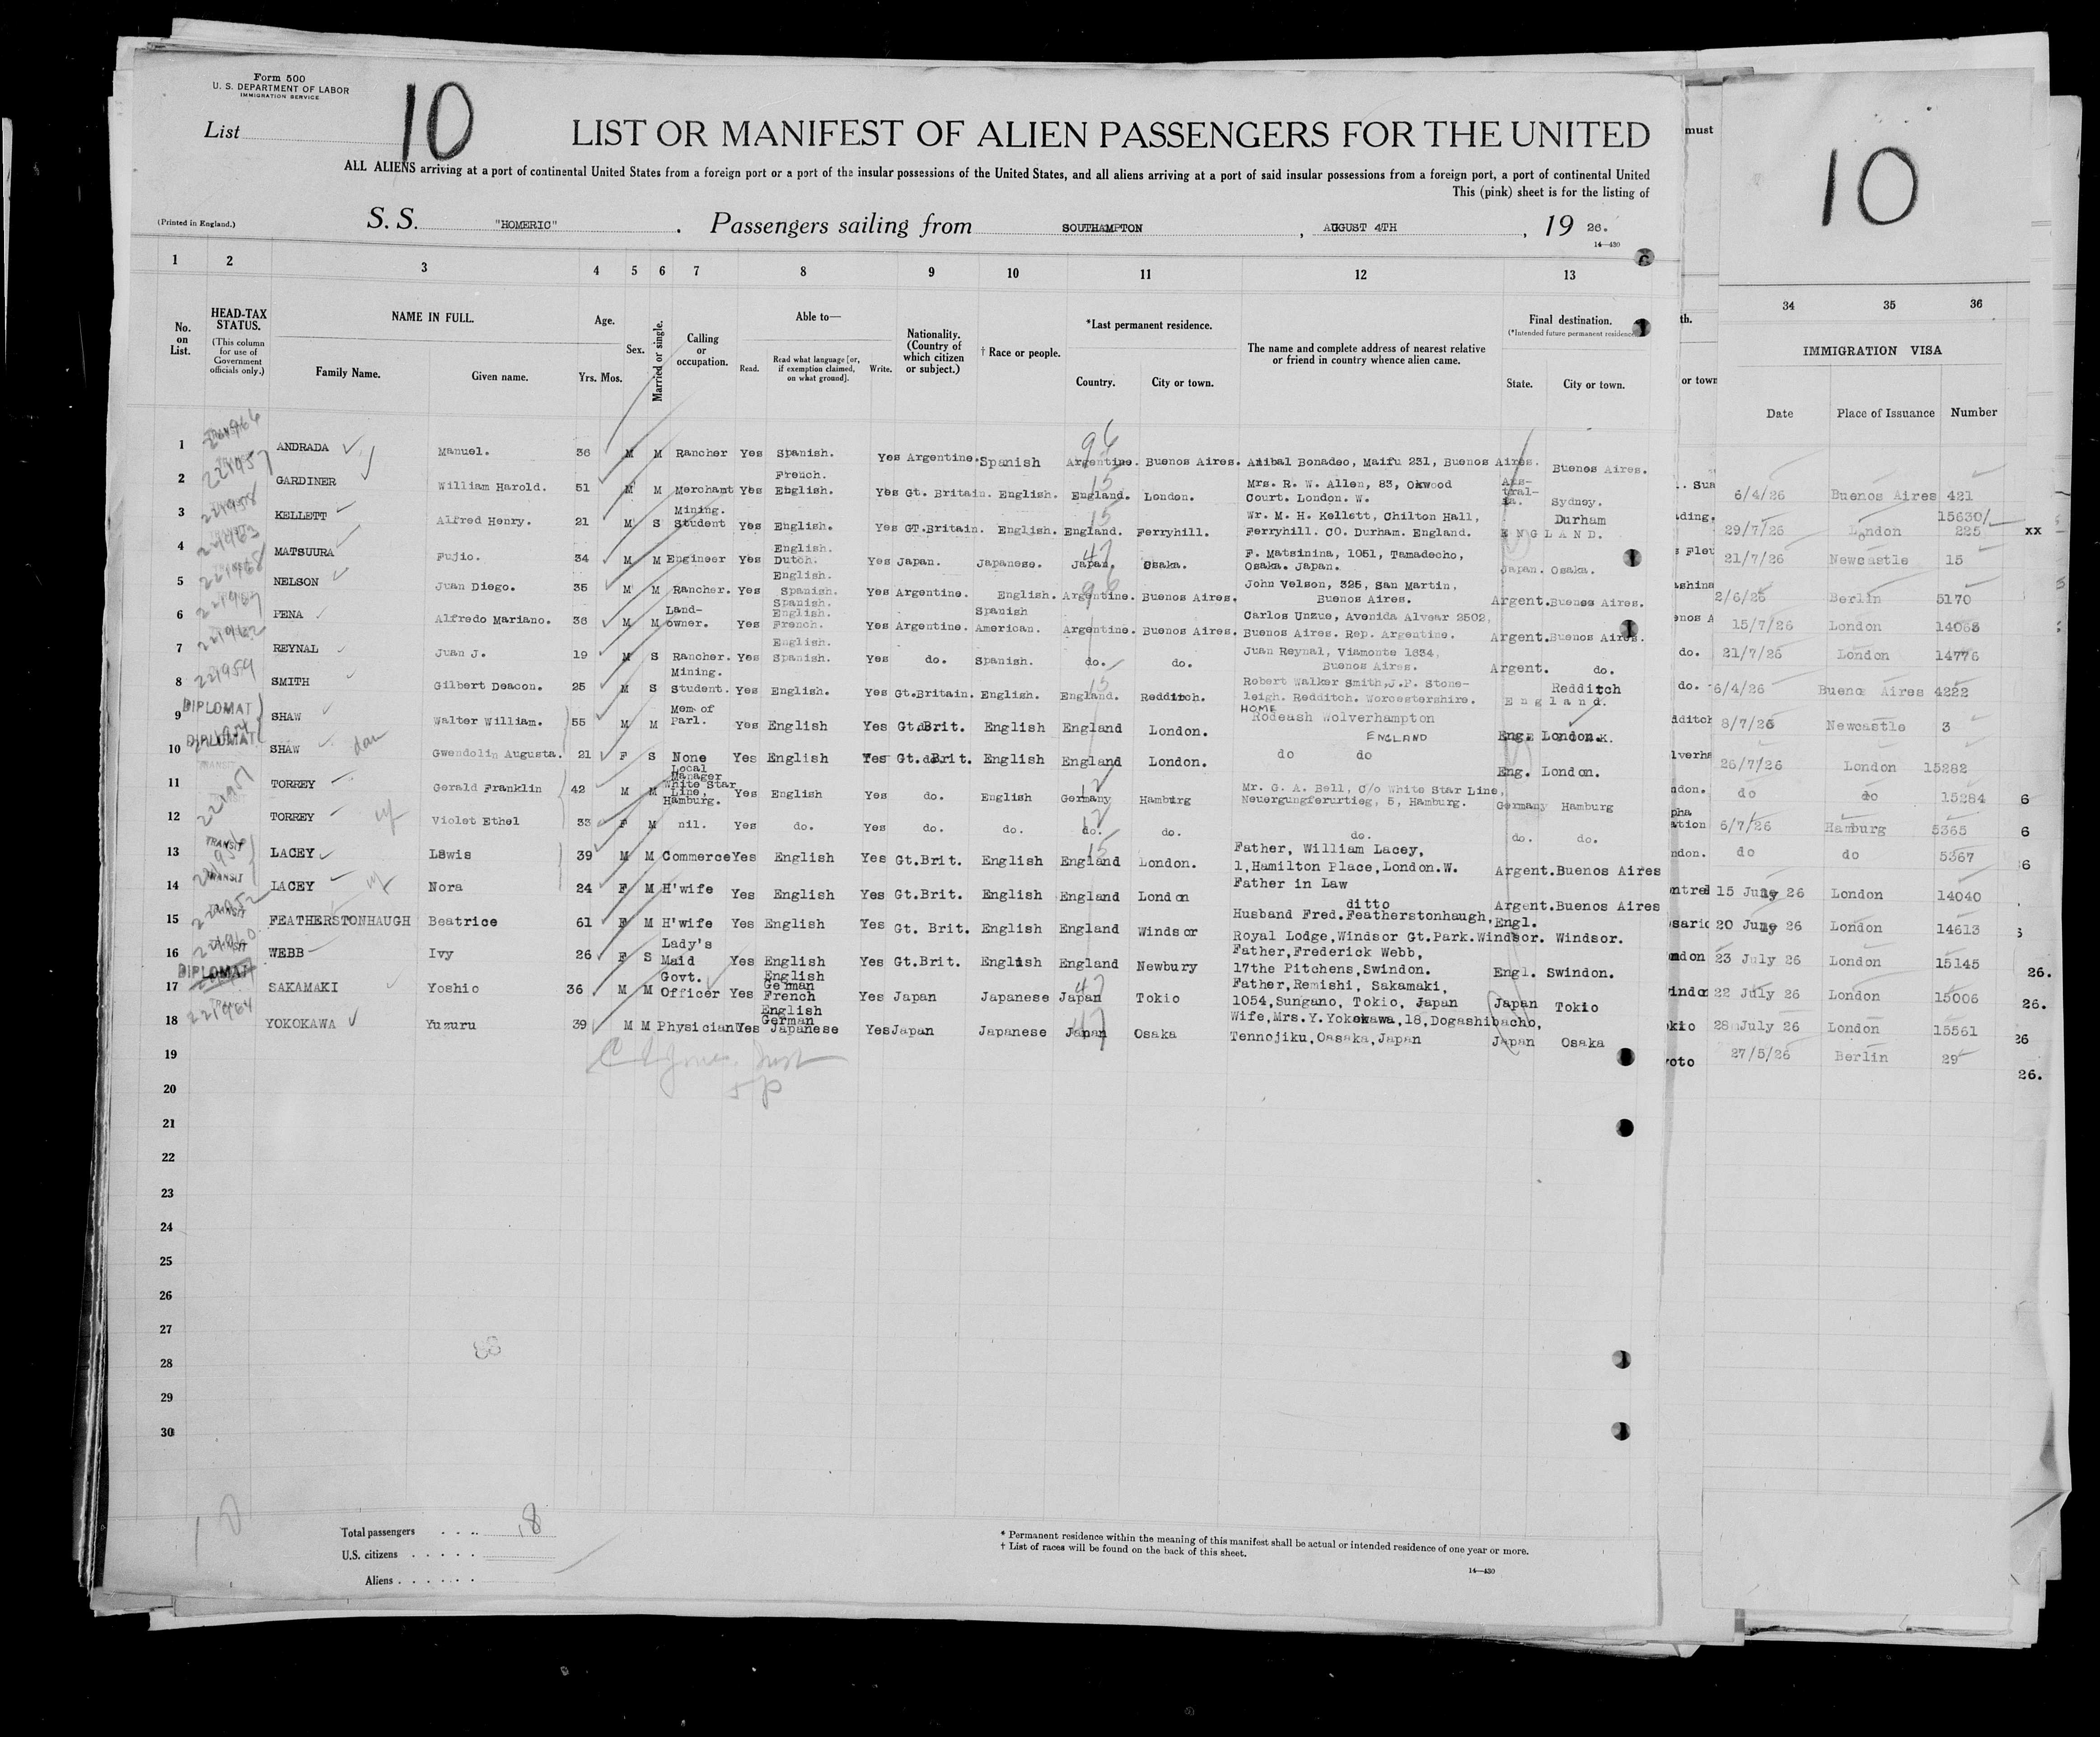 Form 500
U. S. DEPARTMENT OF LABOR
IMMIGRATION SERVICE
List 10
LIST OR MANIFEST OF ALIEN PASSENGERS FOR THE UNITED
ALL ALIENS arriving at a port of continental United States from a foreign port or a port of the insular possessions of the United States, and all aliens arriving at a port of said insular possessions from a foreign port, a port of continental United
This (pink) sheet is for the listing of
(Printed in England.) S. S. "HOMERIC" . Passengers sailing from SOUTHAMPTON , AUGUST 4TH , 19 26.
14—430
1 2 3 4 5 6 7 8 9 10 11 12 13
No. on List. HEAD-TAX STATUS. (This column for use of Government officials only.) NAME IN FULL. Family Name. Given name. Age. Yrs. Mos. Sex. Married or single. Calling or occupation. Able to— Read. Read what language [or, if exemption claimed, on what ground]. Write. Nationality. (Country of which citizen or subject.) † Race or people. *Last permanent residence. Country. City or town. The name and complete address of nearest relative or friend in country whence alien came. Final destination. (*Intended future permanent residence State. City or town.
1 ANDRADA Manuel. 36 M M Rancher Yes Spanish. Yes Argentine. Spanish Argentine. Buenos Aires. Anibal Bonadeo, Maifu 231, Buenos Aires. Buenos Aires.
2 GARDINER William Harold. 51 M M Merchant Yes French. English. Yes Gt. Britain. English. England. London. Mrs. R. W. Allen, 83, Okwood Court. London. W. Aus-tral-ia. Sydney.
3 KELLETT Alfred Henry. 21 M S Mining. Student Yes English. Yes GT.Britain. English. England. Ferryhill. Wr. M. H. Kellett, Chilton Hall, Ferryhill. CO. Durham. England. Durham ENGLAND.
4 MATSUURA Fujio. 34 M M Engineer Yes English. Dutch. Yes Japan. Japanese. Japan. Osaka. F. Matsinina, 1051, Tamadecho, Osaka. Japan. Japan. Osaka.
5 NELSON Juan Diego. 35 M M Rancher. Yes English. Spanish. Yes Argentine. English. Argentine. Buenos Aires. John Velson, 325, San Martin, Buenos Aires. Argent. Buenos Aires.
6 PENA Alfredo Mariano. 36 M M Land-owner. Yes Spanish. English. French. Yes Argentine. Spanish American. Argentine. Buenos Aires. Carlos Unzue, Avenida Alvear 2502, Buenos Aires. Rep. Argentine. Argent. Buenos Aires.
7 REYNAL Juan J. 19 M S Rancher. Yes English. Spanish. Yes do. Spanish. do. do. Juan Reynal, Viamonte 1634, Buenos Aires. Argent. do.
8 SMITH Gilbert Deacon. 25 M S Mining. Student. Yes English. Yes Gt.Britain. English. England. Redditch. Robert Walker Smith,J.P. Stone-leigh. Redditch. Worcestershire. Redditch England.
DIPLOMAT
9 SHAW Walter William. 55 M M Mem of Parl. Yes English Yes Gt.Brit. English England London. HOME Rodeash Wolverhampton ENGLAND Eng. London.
DIPLOMAT
10 SHAW dau Gwendolin Augusta. 21 F S None Yes English Yes Gt.Brit. English England London. do do Eng. London.
TRANSIT
11 TORREY Gerald Franklin 42 M M Local Manager White Star Line, Hamburg. Yes English Yes do. English Germany Hamburg Mr. G. A. Bell, C/o White Star Line, Neuergungferurtieg, 5, Hamburg. Germany Hamburg
12 TORREY wf Violet Ethel 33 F M nil. Yes do. Yes do. do. do. do. do. do. do.
TRANSIT
13 LACEY Lewis 39 M M Commerce Yes English Yes Gt.Brit. English England London. Father, William Lacey, 1,Hamilton Place,London.W. Argent. Buenos Aires
TRANSIT
14 LACEY wf Nora 24 F M H'wife Yes English Yes Gt.Brit. English England London Father in Law ditto Argent. Buenos Aires
15 FEATHERSTONHAUGH Beatrice 61 F M H'wife Yes English Yes Gt. Brit. English England Windsor Husband Fred.Featherstonhaugh, Royal Lodge,Windsor Gt.Park.Windsor. Engl. Windsor.
16 WEBB Ivy 26 F S Lady's Maid Yes English Yes Gt.Brit. English England Newbury Father,Frederick Webb, 17the Pitchens,Swindon. Engl. Swindon.
DIPLOMAT
17 SAKAMAKI Yoshio 36 M M Govt. Officer Yes English German French Yes Japan Japanese Japan Tokio Father,Remishi, Sakamaki, 1054,Sungano, Tokio, Japan Japan Tokio
18 YOKOKAWA Yuzuru 39 M M Physician Yes English German Japanese Yes Japan Japanese Japan Osaka Wife,Mrs.Y.Yokokawa,18,Dogashibacho, Tennojiku,Oasaka,Japan Japan Osaka
19
20
21
22
23
24
25
26
27
28
29
30
Total passengers 18
U.S. citizens
Aliens
* Permanent residence within the meaning of this manifest shall be actual or intended residence of one year or more.
† List of races will be found on the back of this sheet.
14—430
must
10
34 35 36
IMMIGRATION VISA
Date Place of Issuance Number
6/4/26 Buenos Aires 421
29/7/26 London 15630/225 xx
21/7/26 Newcastle 15
2/6/26 Berlin 5170
15/7/26 London 14063
21/7/26 London 14776
6/4/26 Buenos Aires 4222
8/7/26 Newcastle 3
26/7/26 London 15282
do do 15284
6/7/26 Hamburg 5365
do do 5367
15 July 26 London 14040
20 July 26 London 14613
23 July 26 London 15145
22 July 26 London 15006
28 July 26 London 15561
27/5/26 Berlin 29